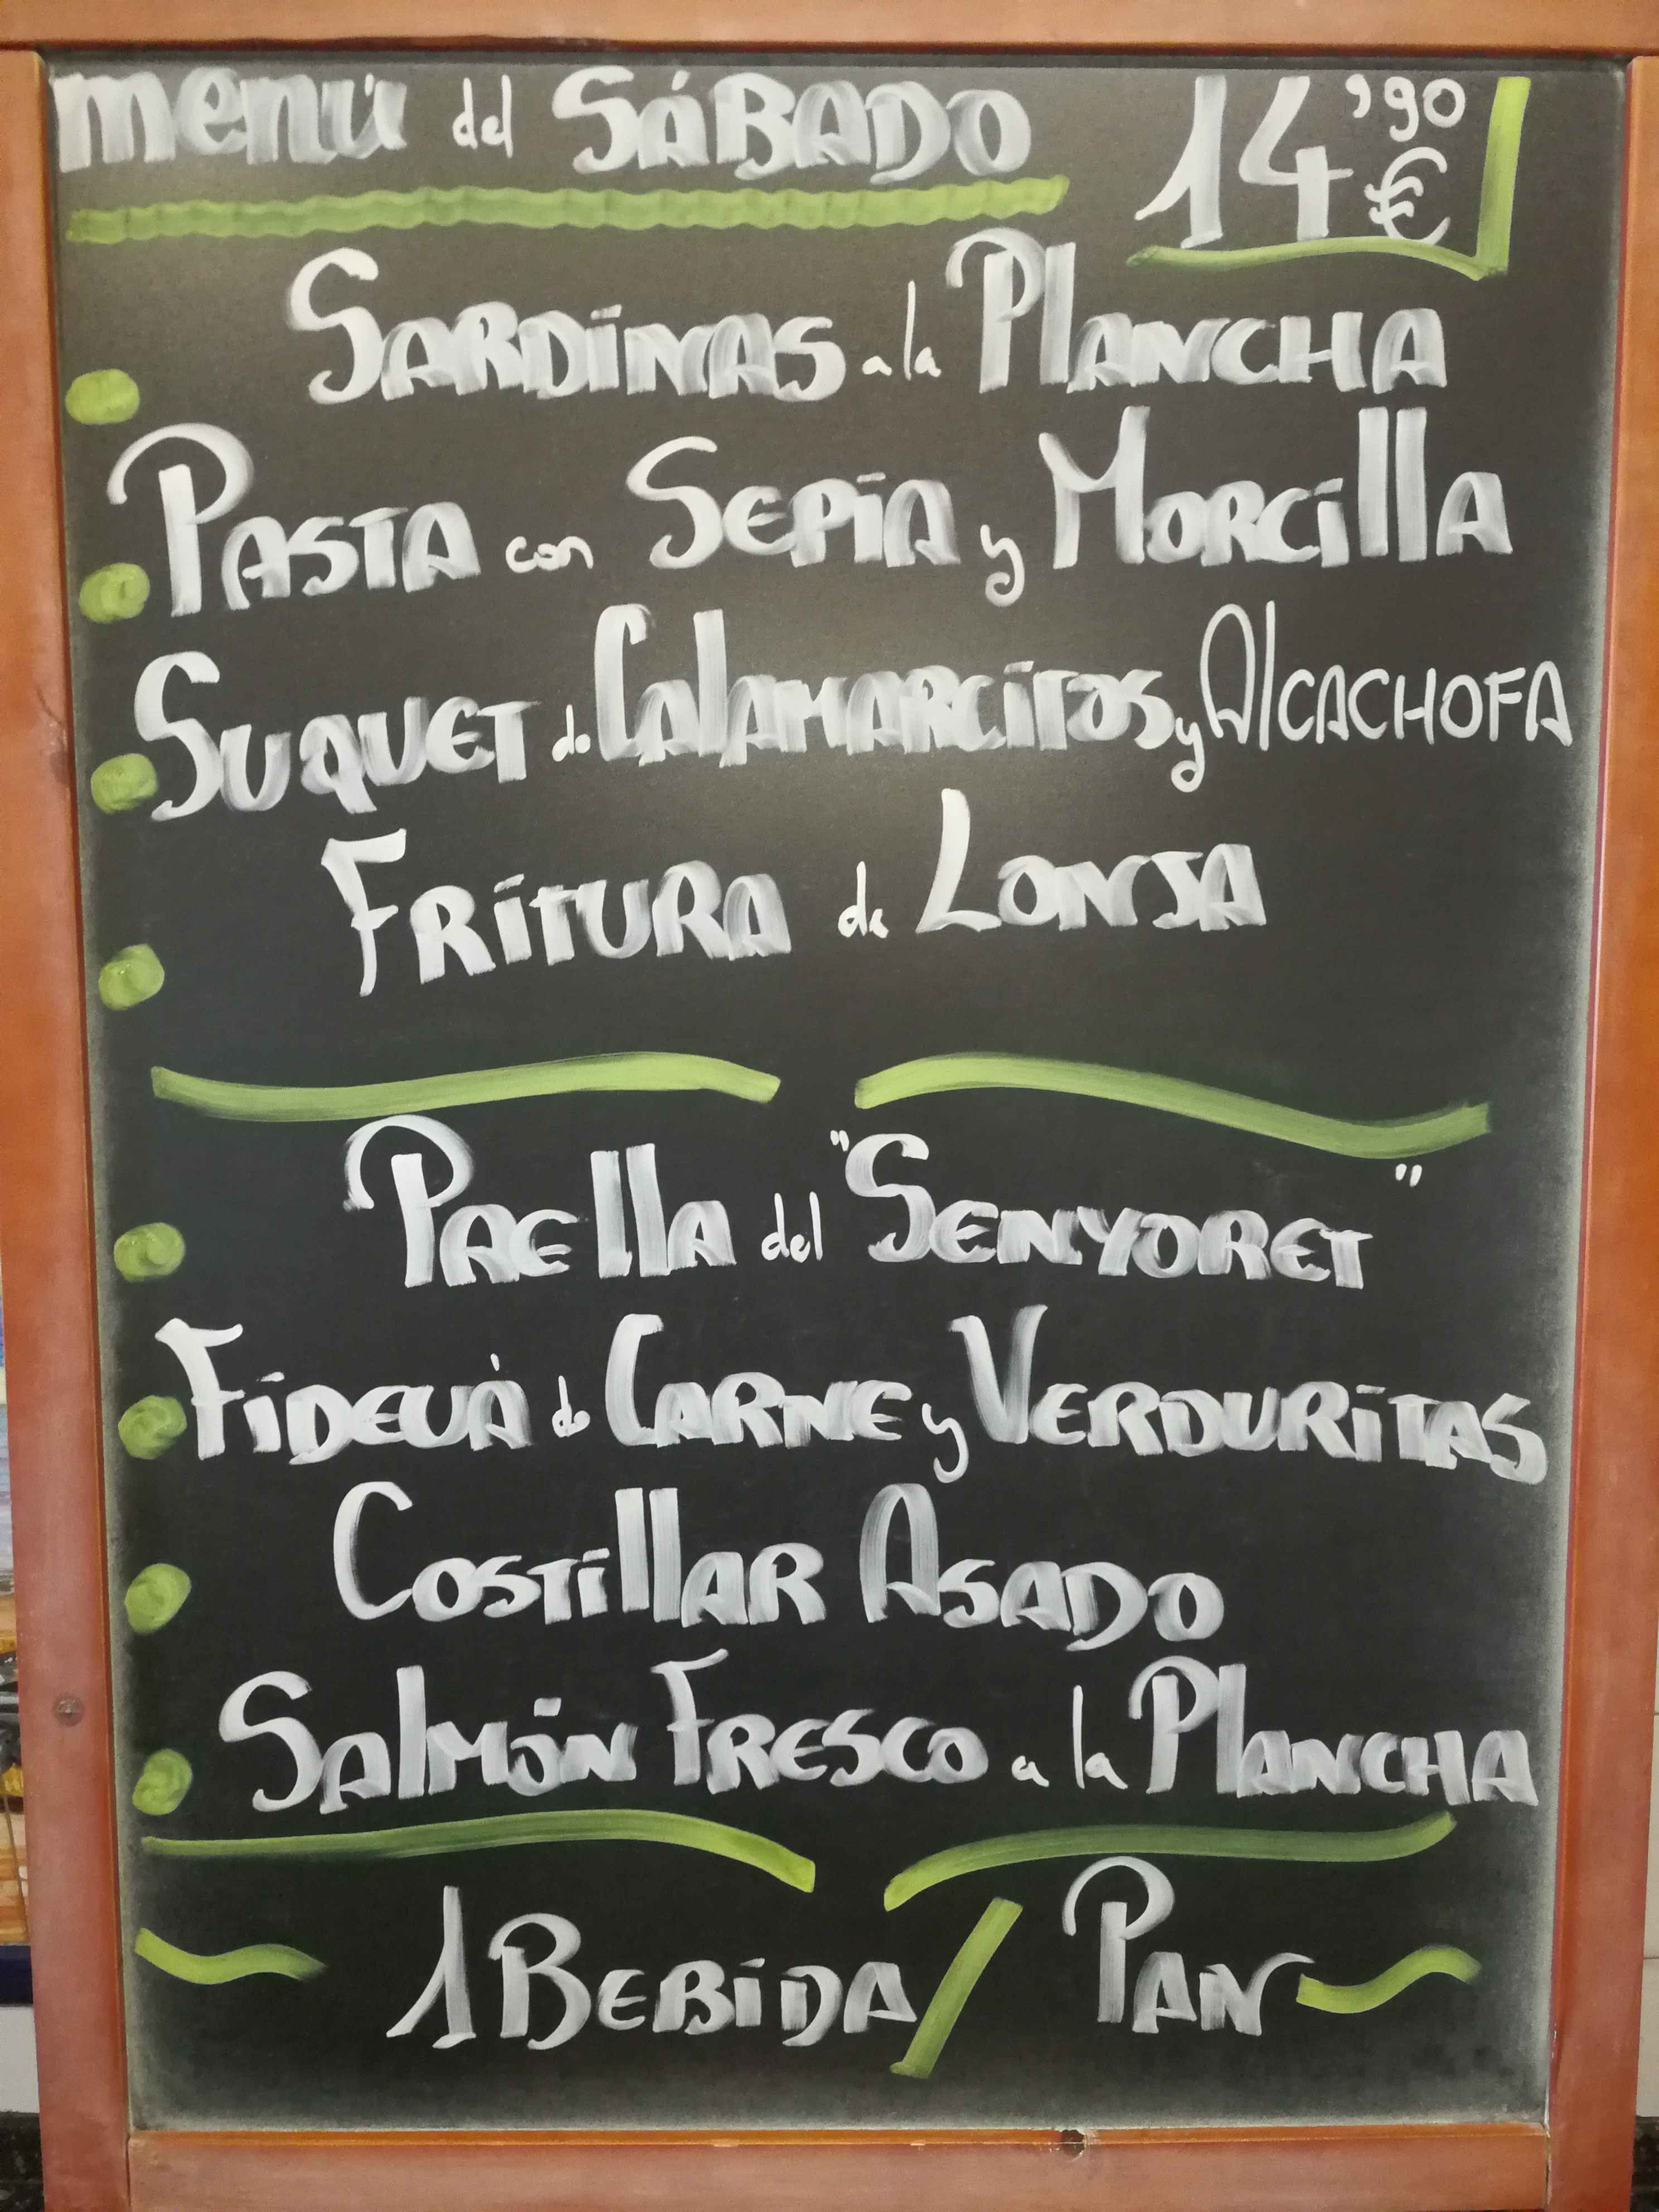 menú del SÁBADO 14,90 €
SARDINAS a la PLANCHA
PASTA con SEPIA y MORCILLA
SUQUET de CALAMARCITOS y ALCACHOFA
FRITURA de LONJA
PAELLA del "SENYORET"
FIDEUÀ de CARNE y VERDURITAS
COSTILLAR ASADO
SALMÓN FRESCO a la PLANCHA
1 BEBIDA / PAN